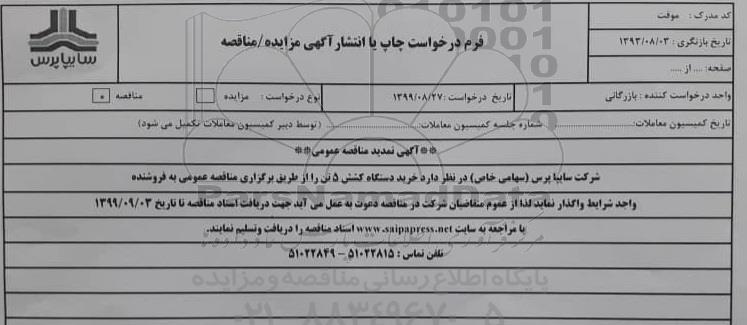 کد مدرک : موقت
تاریخ بازنگری : ۱۳۹۳/۰۸/۰۳
صفحه: .... از .....
فرم درخواست چاپ یا انتشار آگهی مزایده/مناقصه
سایپاپرس
واحد درخواست کننده : بازرگانی تاریخ درخواست :۱۳۹۹/۰۸/۲۷ نوع درخواست : مزایده مناقصه
تاریخ کمیسیون معاملات:........ شماره جلسه کمیسیون معاملات:........ (توسط دبیر کمیسیون معاملات تکمیل می شود)
**آگهی تمدید مناقصه عمومی**
شرکت سایپا پرس (سهامی خاص) در نظر دارد خرید دستگاه کشش ۵ تن را از طریق برگزاری مناقصه عمومی به فروشنده
واجد شرایط واگذار نماید لذا از عموم متقاضیان شرکت در مناقصه دعوت به عمل می آید جهت دریافت اسناد مناقصه تا تاریخ ۱۳۹۹/۰۹/۰۳
با مراجعه به سایت www.saipapress.net اسناد مناقصه را دریافت وتسلیم نمایند.
تلفن تماس : ۵۱۰۲۲۸۱۵ – ۵۱۰۲۲۸۴۹
ParsNamadData
پایگاه اطلاع رسانی مناقصه و مزایده
۰۲۱-۸۸۳۴۹۶۷۰-۵